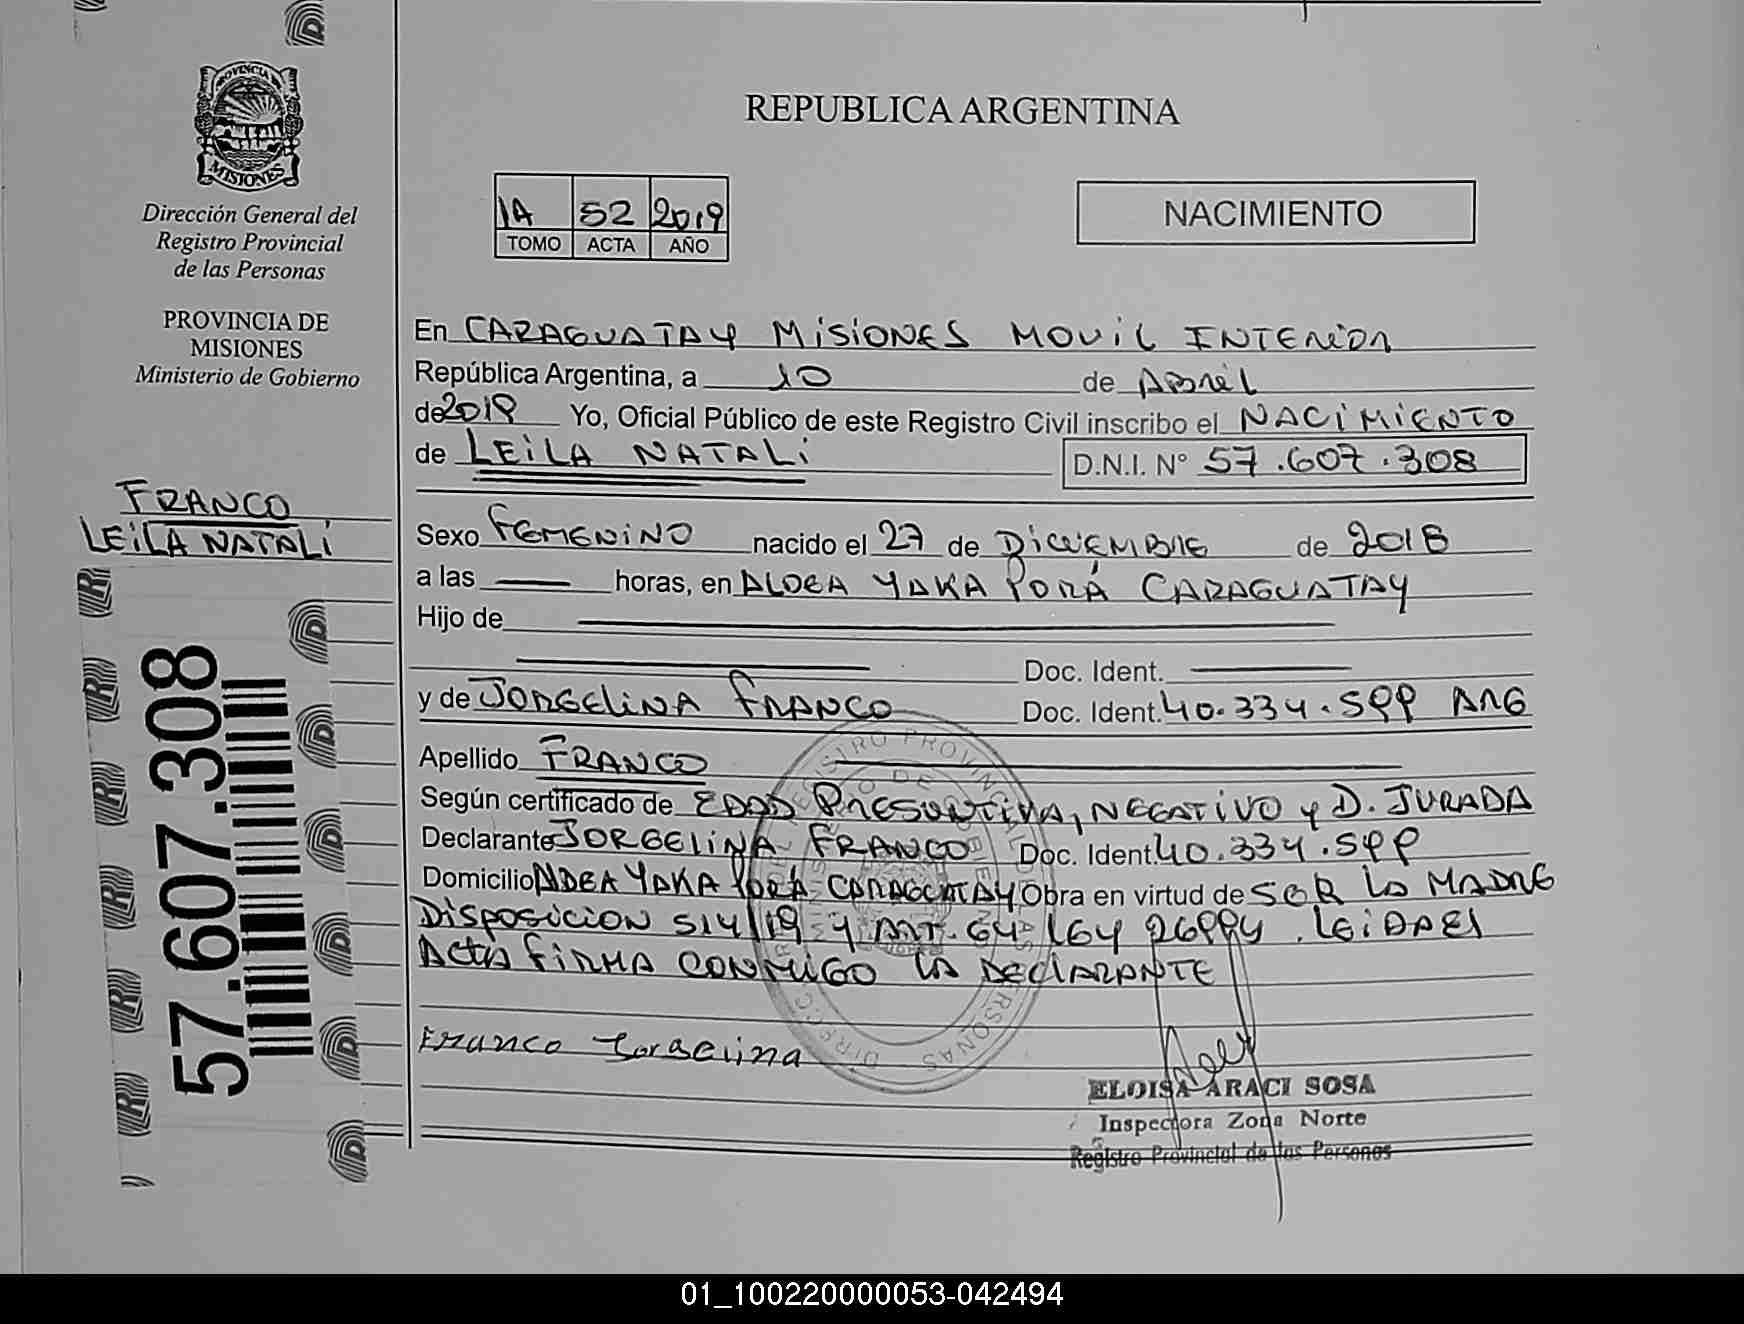 PROVINCIA DE
MISIONES
Dirección General del
Registro Provincial
de las Personas
PROVINCIA DE
MISIONES
Ministerio de Gobierno
FRANCO
LEILA NATALI
57.607.308
REPUBLICA ARGENTINA
1A 52 2019
TOMO ACTA AÑO
NACIMIENTO
En CARAGUATAY MISIONES MOVIL INTERIOR
República Argentina, a 10 de ABRIL
de 2019 Yo, Oficial Público de este Registro Civil inscribo el NACIMIENTO
de LEILA NATALI D.N.I. N° 57.607.308
Sexo FEMENINO nacido el 27 de DICIEMBRE de 2018
a las horas, en ALDEA YAKA PORÁ CARAGUATAY
Hijo de
Doc. Ident.
y de JORGELINA FRANCO Doc. Ident. 40.334.599 ARG
Apellido FRANCO
Según certificado de EDAD PRESUNTIVA, NEGATIVO y D. JURADA
Declarante JORGELINA FRANCO Doc. Ident 40.334.599
Domicilio ALDEA YAKA PORÁ CARAGUATAY Obra en virtud de SER LA MADRE
DISPOSICION 514/19 y ART. 64 LEY 26994. LEIDA EL
ACTA FIRMA CONMIGO LA DECLARANTE
Franco Jorgelina
ELOISA ARACI SOSA
Inspectora Zona Norte
Registro Provincial de las Personas
01_100220000053-042494